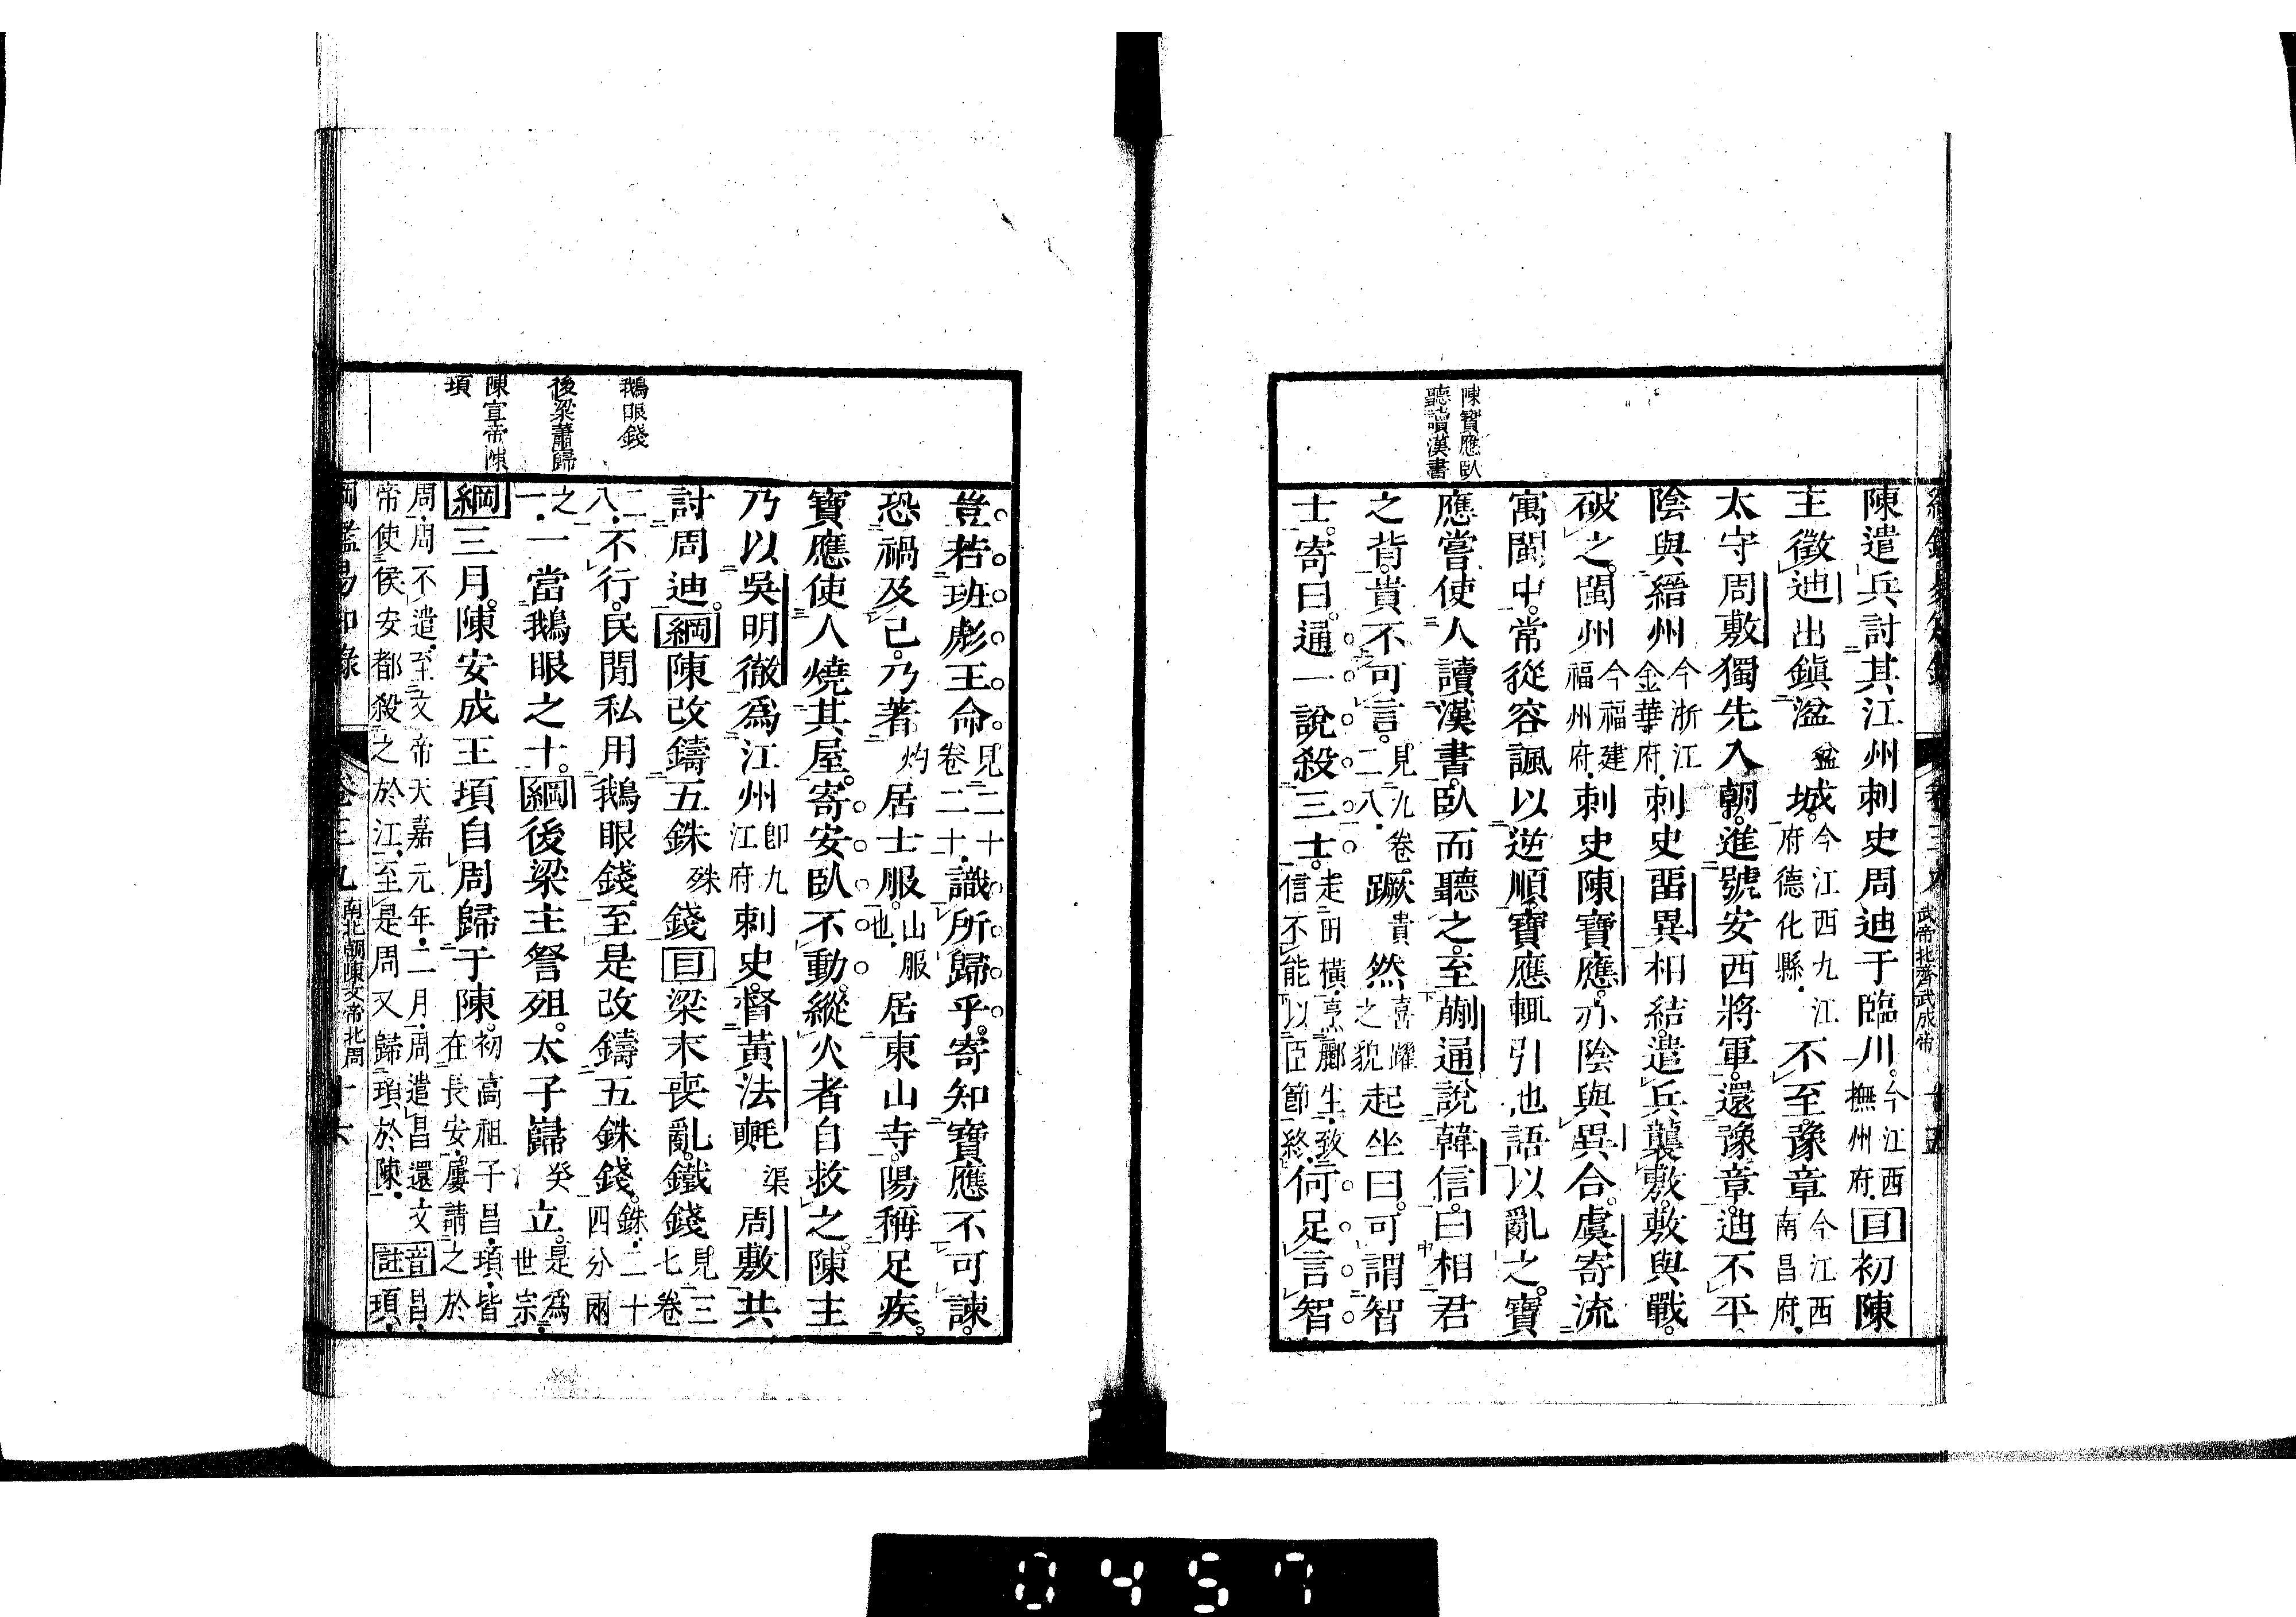 陳寶應臥
聽讀漢書
陳遣兵討其江州刺史周迪于臨川。今江西撫州府。目初陳
主徵迪出鎮湓盆城。今江西九江府德化縣。不至。豫章今江西南昌府。
太守周敷獨先入朝。進號安西將軍。還豫章。迪不平。
陰與縉州今浙江金華府。刺史留異相結。遣兵襲敷。敷與戰。
破之。閩州今福建福州府。刺史陳寶應。亦陰與異合。虞寄流
寓閩中。常從容諷以逆順。寶應輒引他語以亂之。寶
應嘗使人讀漢書。臥而聽之。至蒯通說韓信。曰相君
之背。貴不可言。見九卷二八。蹶貴然喜躍之貌起坐曰。可謂智
士。寄曰。通一說殺三士。走田橫。烹酈生。致信不能以臣節終。何足言智
武帝北齊武成帝
鵝眼錢
後梁蕭巋
陳宣帝陳
頊
豈若班彪王命。見二十卷二十。識所歸乎。寄知寶應不可諫。
恐禍及己。乃著灼居士服。山服也。居東山寺。陽稱足疾。
寶應使人燒其屋。寄安臥不動。縱火者自救之。陳主
乃以吳明徹為江州即九江府刺史。督黃法𣰰渠周敷共
討周迪。綱陳改鑄五銖殊錢。目梁末喪亂。鐵錢見三七卷
二八。不行。民閒私用鵝眼錢。至是改鑄五銖錢。銖二十四分兩
之一。一當鵝眼之十。綱後梁主詧殂。太子巋癸立。是為世宗。
綱三月。陳安成王頊自周歸于陳。初高祖子昌。頊皆在長安。屢請之於
周。周不遣。至文帝天嘉元年。二月。周遣昌還。文帝使侯安都殺之於江。至是周又歸頊於陳。音註昌。頊。
綱鑑易知錄 卷三九 南北朝陳文帝北周 十六